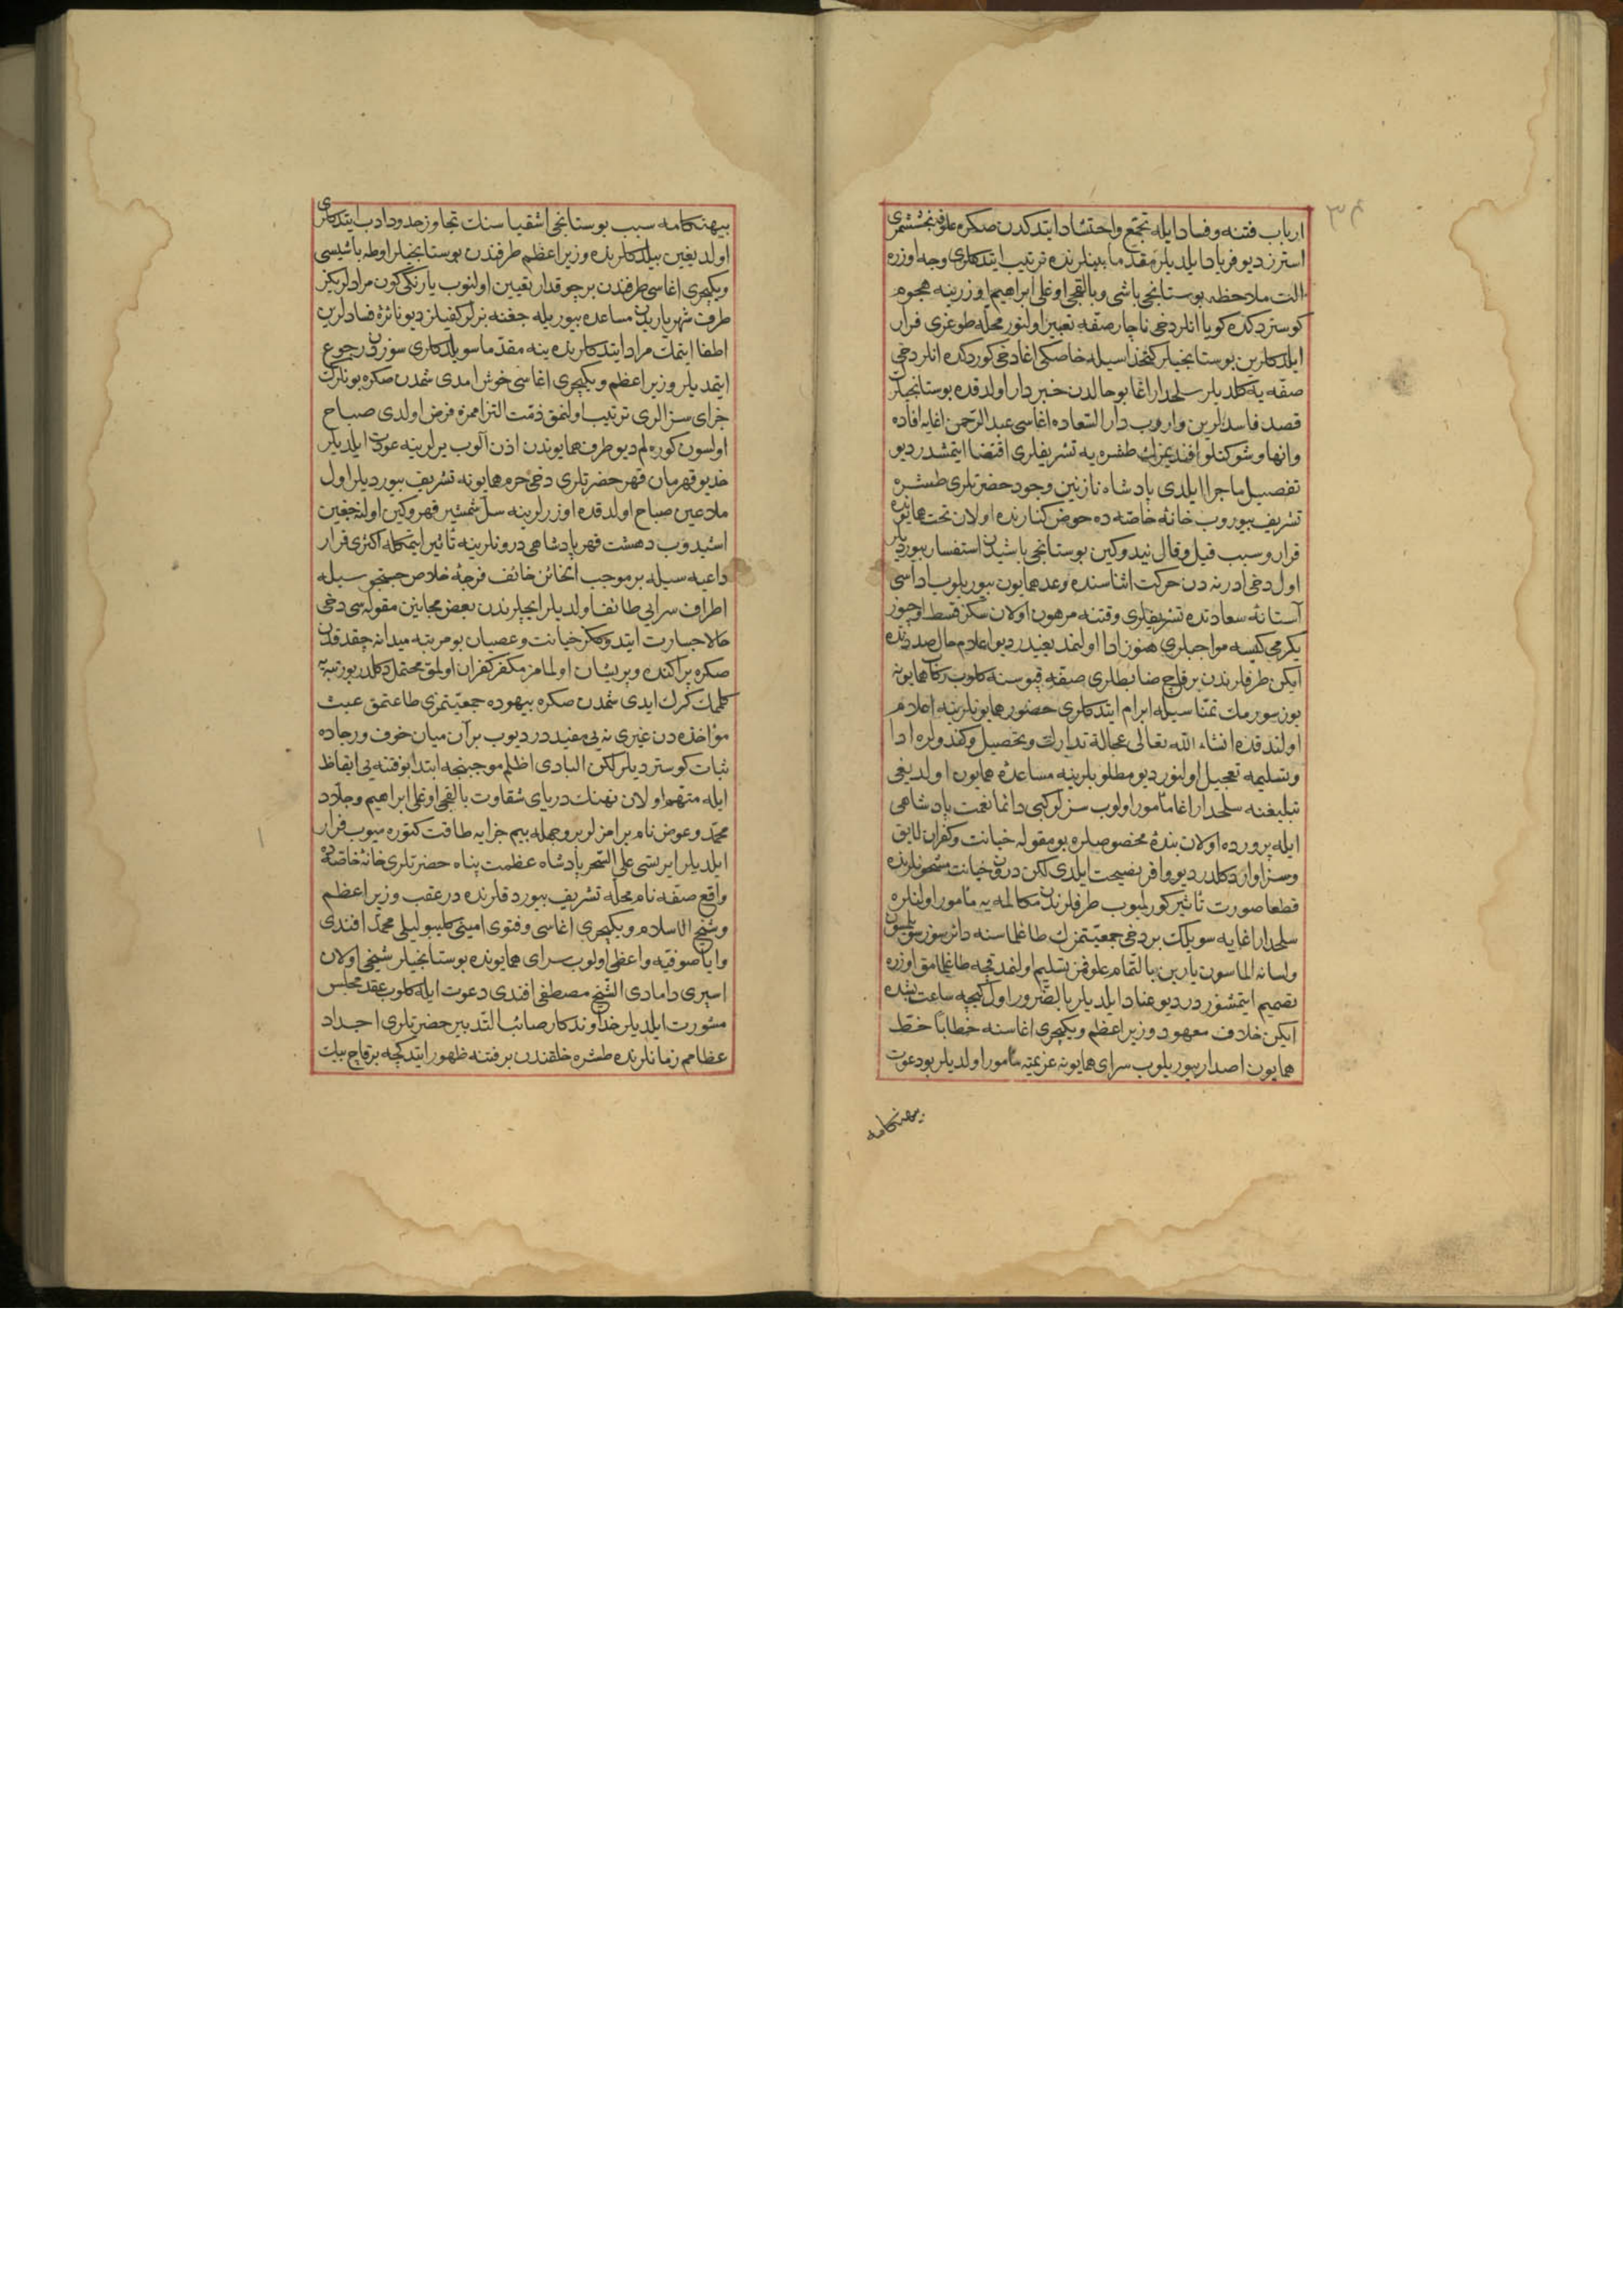 ٣٤
ارباب فتنه و فساد ایله تجمّع واحتشاد ایتدکدن صکره علوفه بخششمزی
استرز دیو فریاد ایلدیلر مقدّما بینلرنده ترتیب ایتدکلری وجه اوزره
الت ملاحظه بوستانجی باشی وبالقجی اوغلی ابراهیم اوزرینه هجوم
کوستردکده کویا انلر دخی ناچار صفّه تعبیر اولنور محلّه طوغری فرار
ایلدکلرین بوستانجیلر کتخداسیله خاصکی اغا دخی کوردکده انلر دخی
صفّه یه کلدیلر سلحدار اغا بو حالدن خبردار اولدقده بوستانجیلرک
قصد فاسدلرین واروب دار السّعاده اغاسی عبد الرّحمن اغایه افاده
وانها و شوکتلو افندیمزک طشره یه تشریفلری اقتضا ایتمشدر دیو
تفصیل ماجرا ایلدی پادشاه نازنین وجود حضرتلری طشره
تشریف بیوروب خانهٔ خاصّه ده حوض کنارنده اولان تخت همایونده
قرار و سبب قیل و قال نیدوکین بوستانجی باشیدن استفسار بیوردیلر
اول دخی ادرنه دن حرکت اثناسنده وعد همایون بیوریلوب اداسی
آستانهٔ سعادتده تشریفلری وقتنه مرهون اولان سکز قسط اوچیوز
یکرمی کیسه مواجبلری هنوز ادا اولنمدیغیدر دیو اعلام حال صددنده
ایکن طرفلرندن برقاچ ضابطلری صفّه قپوسنه کلوب رکاب همایونه
یوز سورمک تمنّاسیله ابرام ایتدکلری حضور همایونلرینه اعلام
اولندقده انشاء الله تعالی عجالةً تدارک وتحصیل وکندولره ادا
وتسلیمه تعجیل اولنور دیو مطلوبلرینه مساعدهٔ همایون اولدیغی
تبلیغنه سلحدار اغا مأمور اولوب سزلر کبی دائما نعمت پادشاهی
ایله پرورده اولان بندهٔ مخصوصلره بو مقوله خیانت و کفران لایق
وسزاوار دکلدر دیو وافر نصیحت ایلدی لکن درون خیانت مشحونلرنده
قطعا صورت تأثیر کورلمیوب طرفلرندن مکالمه یه مأمور اولنلره
سلحدار اغایه سویلک بر دخی جمعیّتمزک طاغلماسنه دائر سوز سویلمسون
واسانه الماسون یارین بالتّمام علوفمز تسلیم اولنمدقجه طاغلمامق اوزره
تصمیم ایتمشوزدر دیو عناد ایلدیلر بالضّرور اول کیجه ساعت بشده
ایکن خلاف معهود وزیر اعظم ویکیچری اغاسنه خطاباً خطّ
همایون اصدار بیوریلوب سرای همایونه عزیمته مأمور اولدیلر بو دعوت
بیهنکامه
بیهنکامه سبب بوستانجی اشقیاسنک تجاوز حدود ادب ایتدکلری
اولدیغین بیلدکلرنده وزیر اعظم طرفندن بوستانجیلر اوطه باشیسی
ویکیچری اغاسی طرفندن بر چوقدار تعیین اولنوب یارنکی کون مرادلریکز
طرف شهریاریدن مساعده بیوریله جغنه بزلر کفیلز دیو نائرهٔ فسادلرین
اطفا ایتمک مراد ایتدکلرنده ینه مقدّما سویلدکلری سوزدن رجوع
ایتمدیلر وزیر اعظم ویکیچری اغاسی خوش امدی شمدن صکره بونلرک
جزای سزالری ترتیب اولنمق ذمّت التزاممزه فرض اولدی صباح
اولسون کوره لم دیو طرف همایوندن اذن آلوب یرلرینه عودت ایلدیلر
خدیو قهرمان قهر حضرتلری دخی حرم همایونه تشریف بیوردیلر اول
ملاعین صباح اولدقده اوزرلرینه سلّ شمشیر قهر وکین اولنه جغین
اشیدوب دهشت قهر پادشاهی درونلرینه تأثیر ایتمکله اکثری فرار
داعیه سیله بر موجب الخائن خائف فرجهٔ خلاص جستجوسیله
اطراف سرایی طائف اولدیلر ایچلرندن بعض مجانین مقوله سی دخی
حالا جسارت ایتدوکمز خیانت وعصیان بو مرتبه میدانه چقدقدن
صکره پراکنده وپریشان اولمامز مکفّر کفران اولمق محتمل دکلدر بو رتبه یه
کلمامک کرک ایدی شمدن صکره بیهوده جمعیّتمزی طاغتمق عبث
مؤاخذه دن غیری نه یی مفیددر دیوب بر آن میان خوف ورجاده
ثبات کوستردیلر لکن البادی اظلم موجبنجه ابتدا بو فتنه یی ایقاظ
ایله متّهم اولان نهنک دریای شقاوت بالقجی اوغلی ابراهیم وجلّاد
محمّد وعوض نام برامزلر بر وجهله بیم جزایه طاقت کتوره میوب فرار
ایلدیلر ایرتسی علی السّحر پادشاه عظمت پناه حضرتلری خانهٔ خاصّه ده
واقع صفّه نام محلّه تشریف بیوردقلرنده در عقب وزیر اعظم
وشیخ الاسلام ویکیچری اغاسی وفتوی امینی کلیبولیلی محمّد افندی
وایاصوفیّه واعظی اولوب سرای همایونده بوستانجیلر شیخی اولان
اسپری دامادی الشّیخ مصطفی افندی دعوت ایله کلوب عقد مجلس
مشورت ایلدیلر خداوندکار صائب التّدبیر حضرتلری اجداد
عظامم زمانلرنده طشره خلقندن بر فتنه ظهور ایتدکجه برقاچ بیک